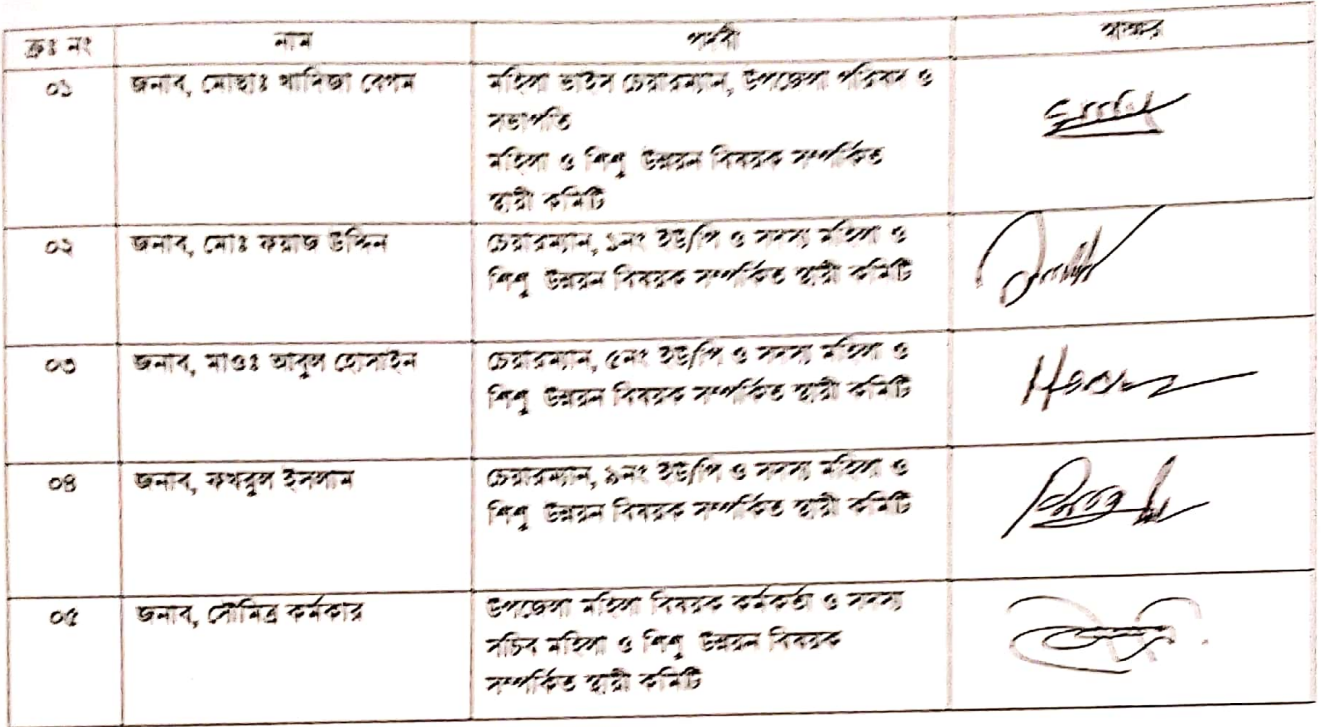 ক্রঃ নং নাম পদবী স্বাক্ষর
০১ জনাব, মোছাঃ খাদিজা বেগম মহিলা ভাইস চেয়ারম্যান, উপজেলা পরিষদ ও
সভাপতি
মহিলা ও শিশু উন্নয়ন বিষয়ক সম্পর্কিত
স্থায়ী কমিটি
০২ জনাব, মোঃ ফয়াজ উদ্দিন চেয়ারম্যান, ১নং ইউ/পি ও সদস্য মহিলা ও
শিশু উন্নয়ন বিষয়ক সম্পর্কিত স্থায়ী কমিটি
০৩ জনাব, মাওঃ আবুল হোসাইন চেয়ারম্যান, ৫নং ইউ/পি ও সদস্য মহিলা ও
শিশু উন্নয়ন বিষয়ক সম্পর্কিত স্থায়ী কমিটি
০৪ জনাব, ফখরুল ইসলাম চেয়ারম্যান, ৯নং ইউ/পি ও সদস্য মহিলা ও
শিশু উন্নয়ন বিষয়ক সম্পর্কিত স্থায়ী কমিটি
০৫ জনাব, সৌমিত্র কর্মকার উপজেলা মহিলা বিষয়ক কর্মকর্তা ও সদস্য
সচিব মহিলা ও শিশু উন্নয়ন বিষয়ক
সম্পর্কিত স্থায়ী কমিটি